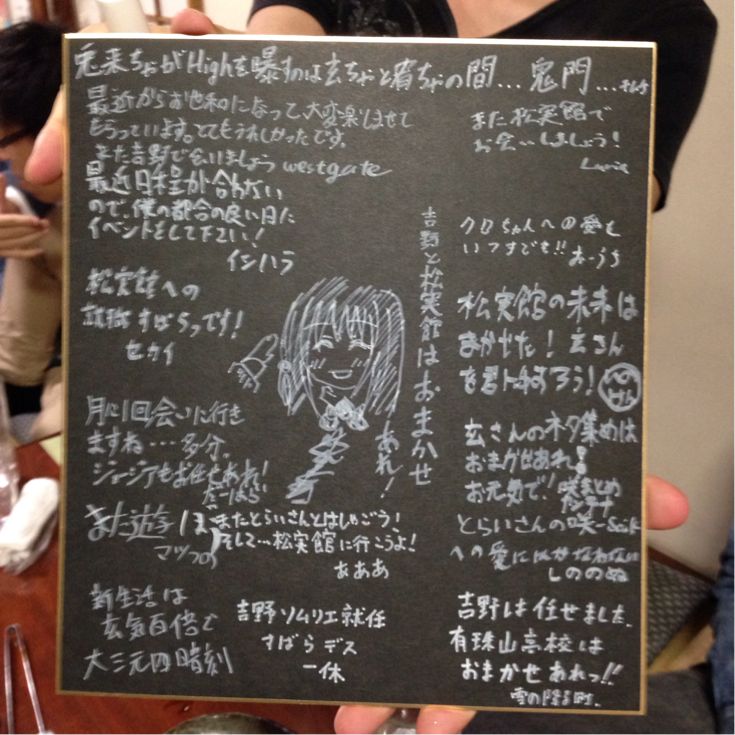 最近からお世話になって大変楽しませて
もらっています。とてもうれしかったです。
また吉野で会いましょう westgate
最近日程が合わない
ので、僕の都合の良い日に
イベントをして下さい!
イシハラ
松実館への
就職すばらっです!
セカイ
月に1回会いに行き
ますね…多分。
ジョージアもお任せあれ!
たーはら
また遊ぼ
マツコの
新生活は
玄気百倍で
大三元四時刻
吉野と松実館はおまかせ
あれ!
またとらいさんとはしゃごう!
そして…松実館に行こうよ!
あああ
吉野ソムリエ就任
すばらデス
一休
また松実館で
お会いしましょう!
クロちゃんへの愛も
いつまでも!! おーうち
松実館の未来は
まかせた! 玄さん
を
玄さんのネタ集めは
おまかせあれ!
お元気で! 咲まとめ
アンテナ
とらいさんの咲-Saki-
への愛にはかなわない
しののぬ
吉野は任せました。
有珠山高校は
おまかせあれっ!!
雪の降る町。